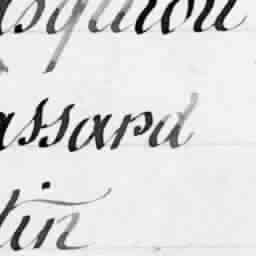 squiou
assard
tin